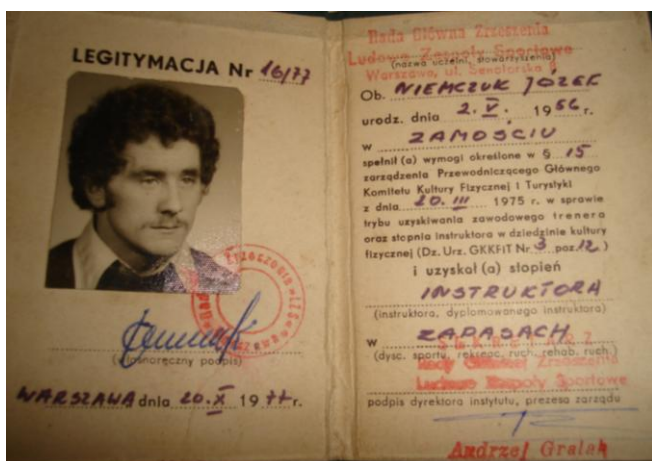 LEGITYMACJA Nr 16/77
(własnoręczny podpis)
WARSZAWA dnia 20.X 1977 r.
Rada Główna Zrzeszenia
Ludowe Zespoły Sportowe
(nazwa uczelni, stowarzyszenia)
Warszawa, ul. Senatorska
Ob. NIEMCZUK JÓZEF
urodz. dnia 2. V. 1956 r.
w ZAMOŚCIU
spełnił (a) wymogi określone w § 15
zarządzenia Przewodniczącego Głównego
Komitetu Kultury Fizycznej i Turystyki
z dnia 20. III 1975 r. w sprawie
trybu uzyskiwania zawodowego trenera
oraz stopnia instruktora w dziedzinie kultury
fizycznej (Dz. Urz. GKKFiT Nr 3 poz. 12)
i uzyskał (a) stopień
INSTRUKTORA
(instruktora, dyplomowanego instruktora)
w ZAPASACH
SEKRETARZ
(dysc. sportu, rekreac. ruch. rehab. ruch.)
Rady Głównej Zrzeszenia
Ludowe Zespoły Sportowe
podpis dyrektora instytutu, prezesa zarządu
Andrzej Gralak